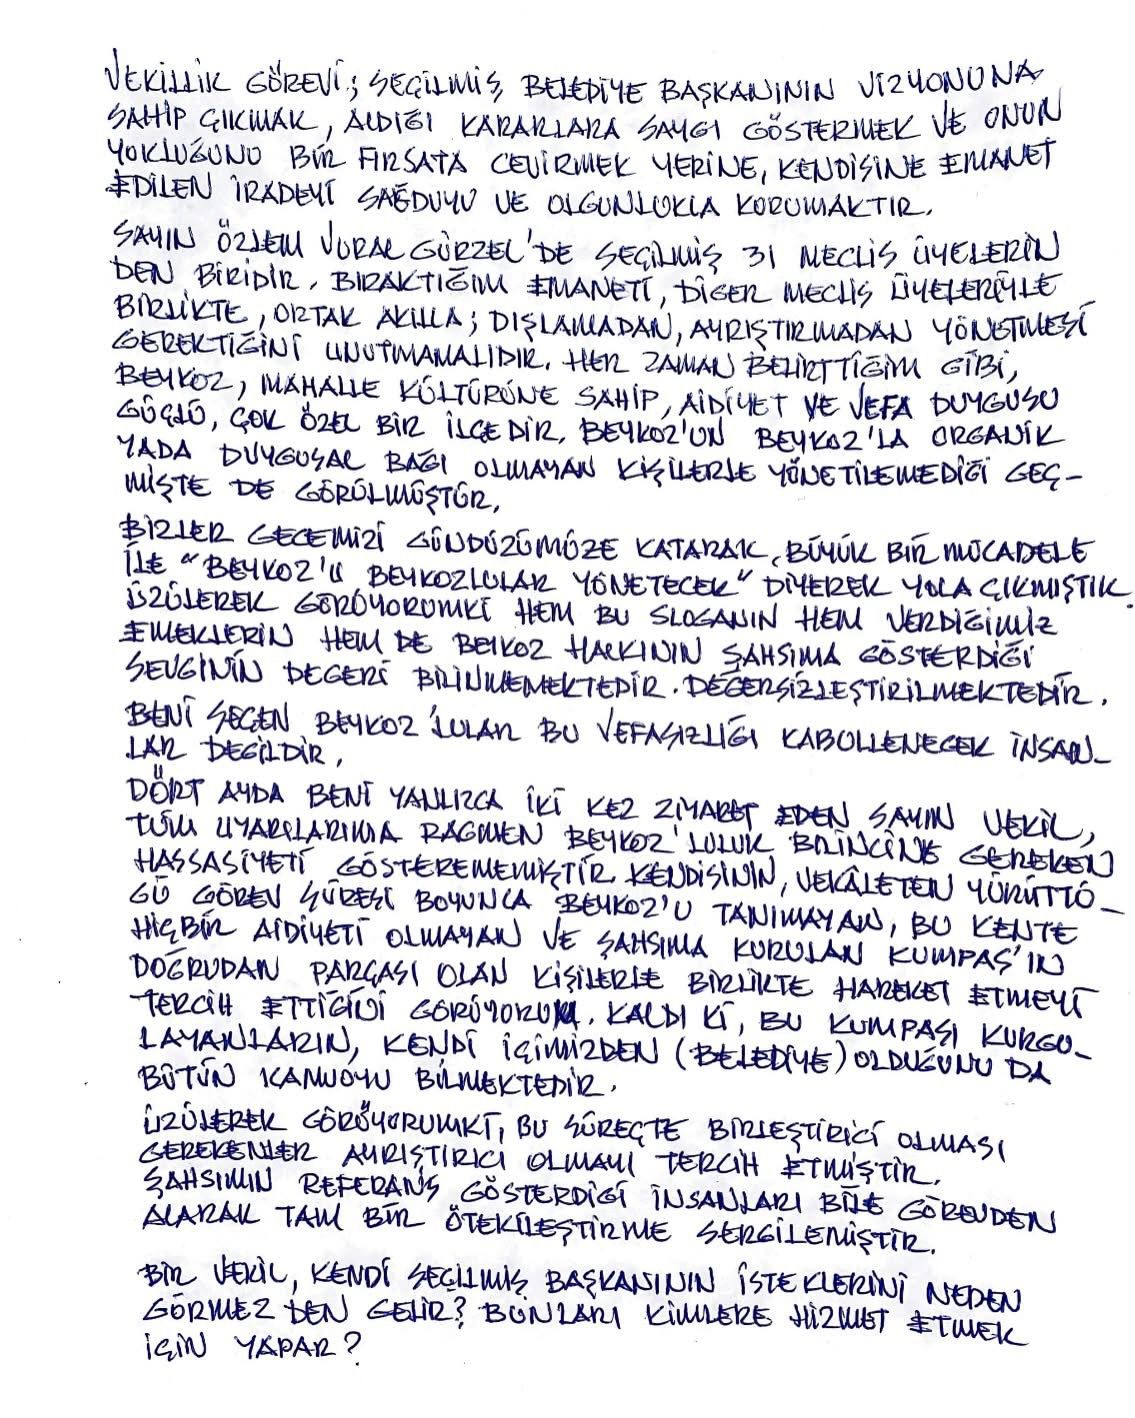 VEKİLLİK GÖREVİ; SEÇİLMİŞ, BELEDİYE BAŞKANININ VİZYONUNA
SAHİP ÇIKMAK, ALDIĞI KARARLARA SAYGI GÖSTERMEK VE ONUN
YOKLUĞUNU BİR FIRSATA CEVİRMEK YERİNE, KENDİSİNE EMANET
EDİLEN İRADEYİ SAĞDUYU VE OLGUNLUKLA KORUMAKTIR.
SAYIN ÖZLEM VURAL GÜRZEL'DE SEÇİLMİŞ 31 MECLİS ÜYELERİN
DEN BİRİDİR. BIRAKTIĞIM EMANETİ, DİGER MECLİS ÜYELERİYLE
BİRLİKTE, ORTAK AKILLA; DIŞLAMADAN, AYRIŞTIRMADAN YÖNETMESİ
GEREKTİĞİNİ UNUTMAMALIDIR. HER ZAMAN BELİRTTİĞİM GİBİ,
BEYKOZ, MAHALLE KÜLTÜRÜNE SAHİP, AİDİYET VE VEFA DUYGUSU
GÜÇLÜ, ÇOK ÖZEL BİR İLÇEDİR. BEYKOZ'UN BEYKOZ'LA ORGANİK
YADA DUYGUSAL BAĞI OLMAYAN KİŞİLERLE YÖNETİLEMEDİĞİ GEÇ-
MİŞTE DE GÖRÜLMÜŞTÜR.
BİZLER GECEMİZİ GÜNDÜZÜMÜZE KATARAK, BÜYÜK BİR MÜCADELE
İLE "BEYKOZ'U BEYKOZLULAR YÖNETECEK" DİYEREK YOLA ÇIKMIŞTIK.
ÜZÜLEREK GÖRÜYORUMKİ HEM BU SLOGANIN HEM VERDİĞİMİZ
EMEKLERİN HEM DE BEIKOZ HALKININ ŞAHSIMA GÖSTERDİĞİ
SEVGİNİN DEGERİ BİLİNMEMEKTEDİR. DEĞERSİZLEŞTİRİLMEKTEDİR.
BENİ SEÇEN BEYKOZ'LULAR BU VEFASIZLIĞI KABULLENECEK İNSAN-
LAR DEĞİLDİR.
DÖRT AYDA BENİ YANLIZCA İKİ KEZ ZİYARET EDEN SAYIN VEKİL,
TÜM UYARILARIMA RAGMEN BEYKOZ'LULUK BİLİNCİNE GEREKEN
HASSASİYETİ GÖSTEREMEMİŞTİR. KENDİSİNİN, VEKÂLETEN YÜRÜTTÜ-
GÜ GÖREV SÜRESİ BOYUNCA BEYKOZ'U TANIMAYAN, BU KENTE
HİÇBİR AİDİYETİ OLMAYAN VE ŞAHSIMA KURULAN KUMPAS'IN
DOĞRUDAN PARÇASI OLAN KİŞİLERLE BİRLİKTE HAREKET ETMEYİ
TERCİH ETTİĞİNİ GÖRÜYORUM. KALDI Kİ, BU KUMPASI KURGU-
LAYANLARIN, KENDİ İÇİMİZDEN (BELEDİYE) OLDUĞUNU DA
BÜTÜN KAMUOYU BİLMEKTEDİR.
ÜZÜLEREK GÖRÜYORUMKİ, BU SÜREÇTE BİRLEŞTİRİCİ OLMASI
GEREKENLER AYRIŞTIRICI OLMAYI TERCİH ETMİŞTİR.
ŞAHSIMIN REFERANS GÖSTERDİĞİ İNSANLARI BİLE GÖREVDEN
ALARAK TAM BİR ÖTEKİLEŞTİRME SERGİLEMİŞTİR.
BİR VEKİL, KENDİ SEÇİLMİŞ BAŞKANININ İSTEKLERİNİ NEDEN
GÖRMEZ DEN GELİR? BUNLARI KİMLERE HİZMET ETMEK
İÇİN YAPAR?